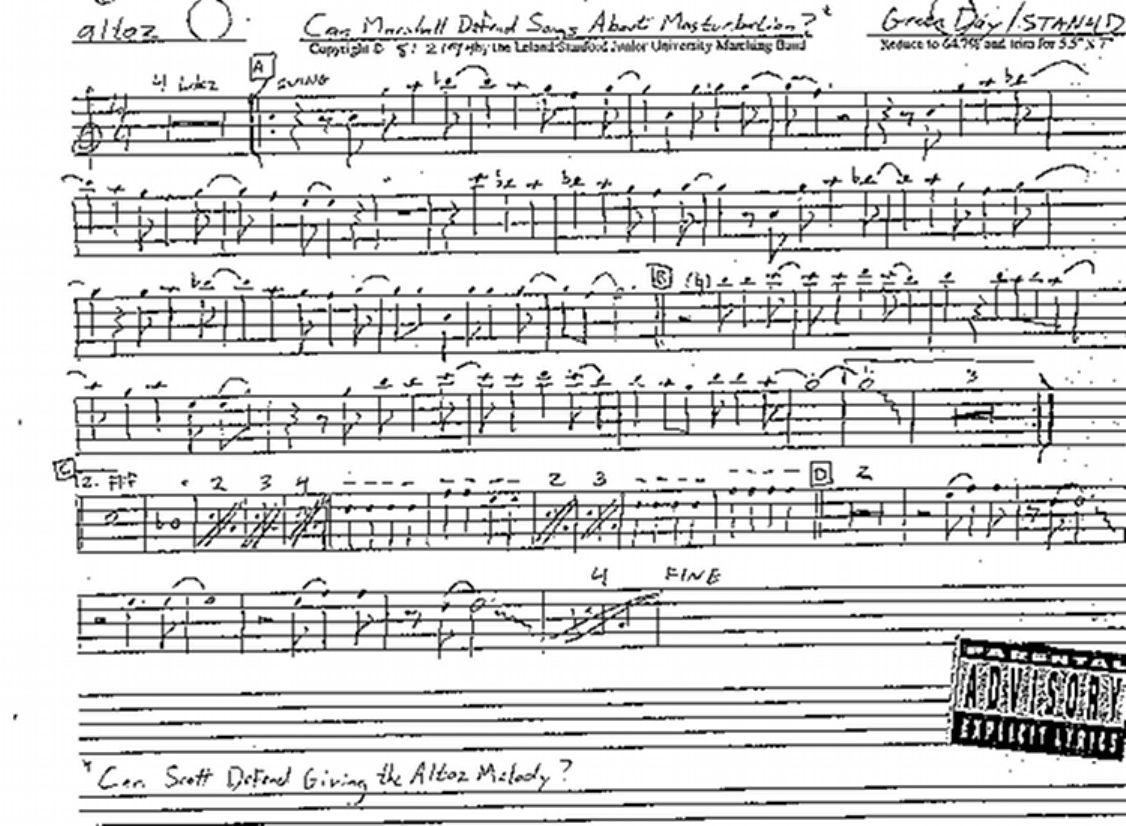 altoz
Can Marshall Defend Songs About Masturbation?*
Green Day / STANHD
Copyright © by the Leland Stanford Junior University Marching Band
Reduce to 64.7% and trim for 5.5" X 7"
4
A
SWING
B
3
C
2.
2 3 4
2 3
D
2
4 FINE
PARENTAL
ADVISORY
EXPLICIT LYRICS
* Can Scott Defend Giving the Altoz Melody?